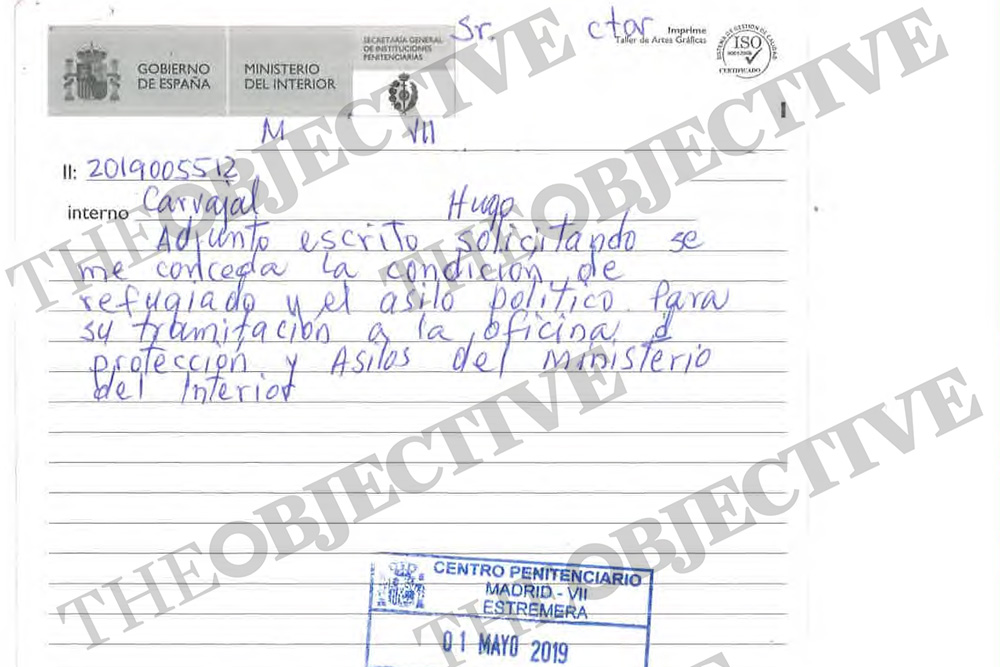 GOBIERNO
DE ESPAÑA
MINISTERIO
DEL INTERIOR
SECRETARÍA GENERAL
DE INSTITUCIONES
PENITENCIARIAS
Sr. ctor
Imprime
Taller de Artes Gráficas
ISO
CERTIFICADO
M VII
II: 2019005512
interno Carvajal Hugo
Adjunto escrito solicitando se
me conceda la condición de
refugiado y el asilo político para
su tramitación a la oficina d
protección y Asilos del Ministerio
del Interior
CENTRO PENITENCIARIO
MADRID - VII
ESTREMERA
01 MAYO 2019
THE OBJECTIVE
THE OBJECTIVE
THE OBJECTIVE
THE OBJECTIVE